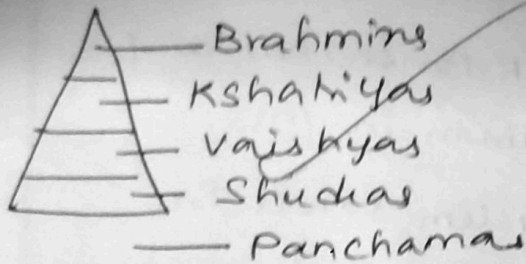 Brahmins
Kshatriyas
Vaishyas
Shudras
Panchamas